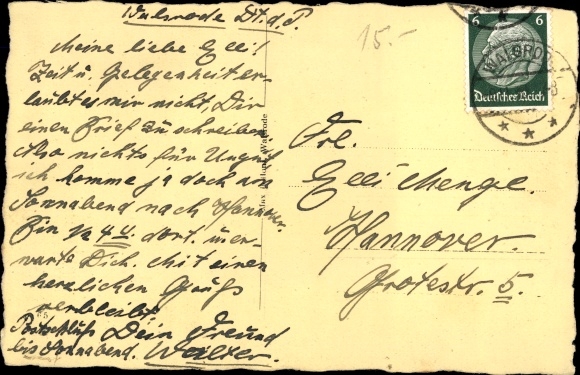 Walsrode Dt. d. P.
Meine liebe Elli!
Zeit u. Gelegenheit er-
laubt es mir nicht, Dir
einen Brief zu schreiben.
Also nichts für Ungut
ich komme ja doch am
Sonnabend nach Hannover.
Bin ½ 4 U. dort. u. er-
warte Dich. Mit einen
herzlichen Gruß
verbleibt
Dein Freund
Walter.
Postschluß
bis Sonnabend.
15.-
6 6
Deutsches Reich
WALSRODE
Walsrode
Frl.
Elli Menge.
Hannover.
Grotestr. 5.